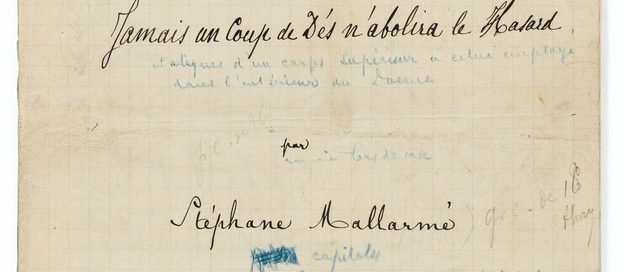 Jamais un Coup de Dés n'abolira le Hasard,
italiques d'un corps supérieur à celui employé
dans l'intérieur du Poème
par
romain bas de casse
Stéphane Mallarmé
capitales